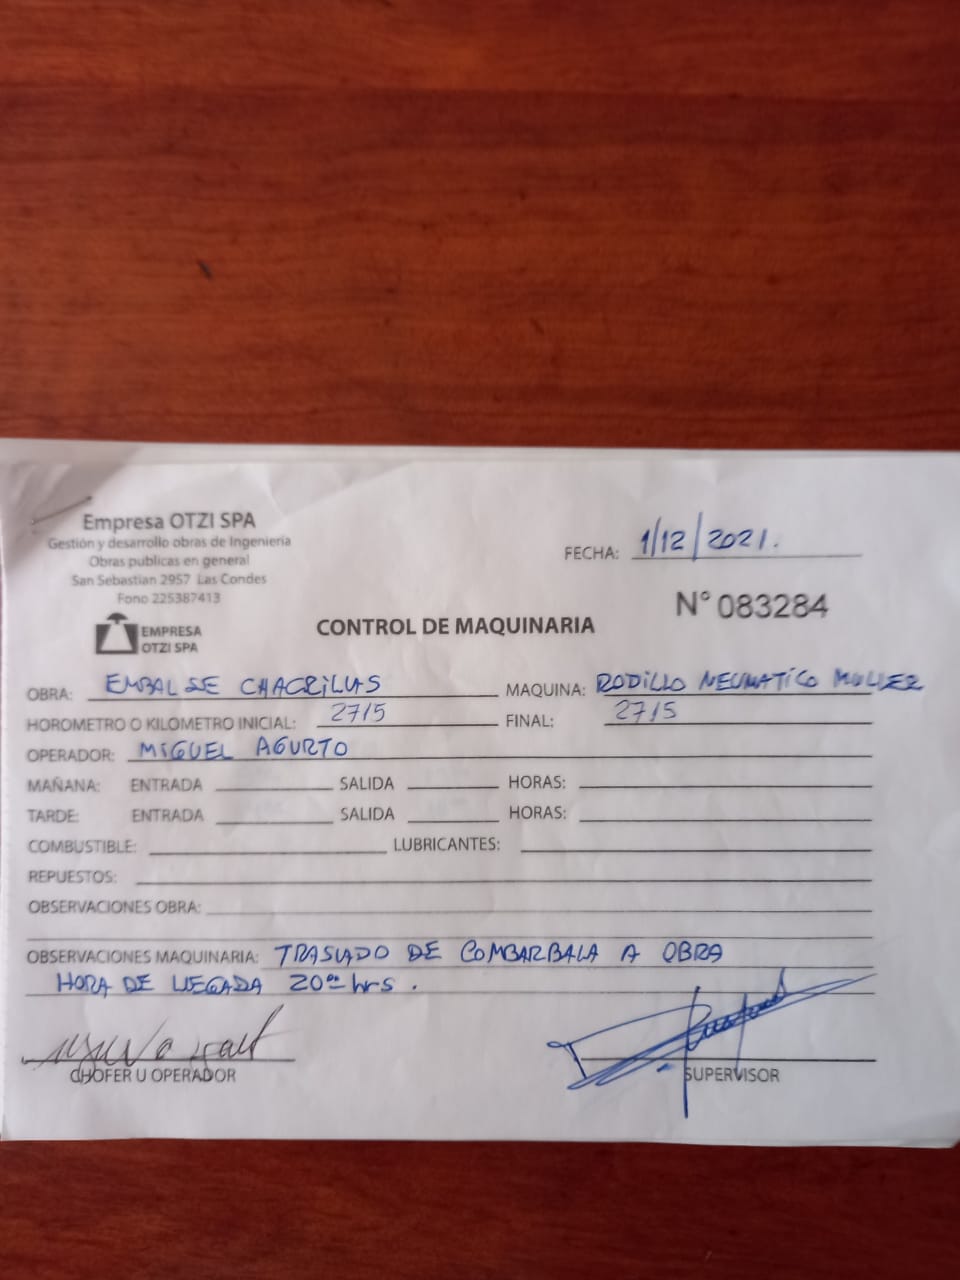 Empresa OTZI SPA
Gestión y desarrollo obras de Ingeniería
Obras publicas en general
San Sebastian 2957 Las Condes
Fono 225387413
EMPRESA
OTZI SPA
FECHA: 1/12/2021.
N° 083284
CONTROL DE MAQUINARIA
OBRA: EMBALSE CHACRILLAS MAQUINA: RODILLO NEUMATICO MULLER
HOROMETRO O KILOMETRO INICIAL: 2715 FINAL: 2715
OPERADOR: MIGUEL AGURTO
MAÑANA: ENTRADA SALIDA HORAS:
TARDE: ENTRADA SALIDA HORAS:
COMBUSTIBLE: LUBRICANTES:
REPUESTOS:
OBSERVACIONES OBRA:
OBSERVACIONES MAQUINARIA: TRASLADO DE COMBARBALA A OBRA
HORA DE LLEGADA 20oo hrs.
CHOFER U OPERADOR SUPERVISOR